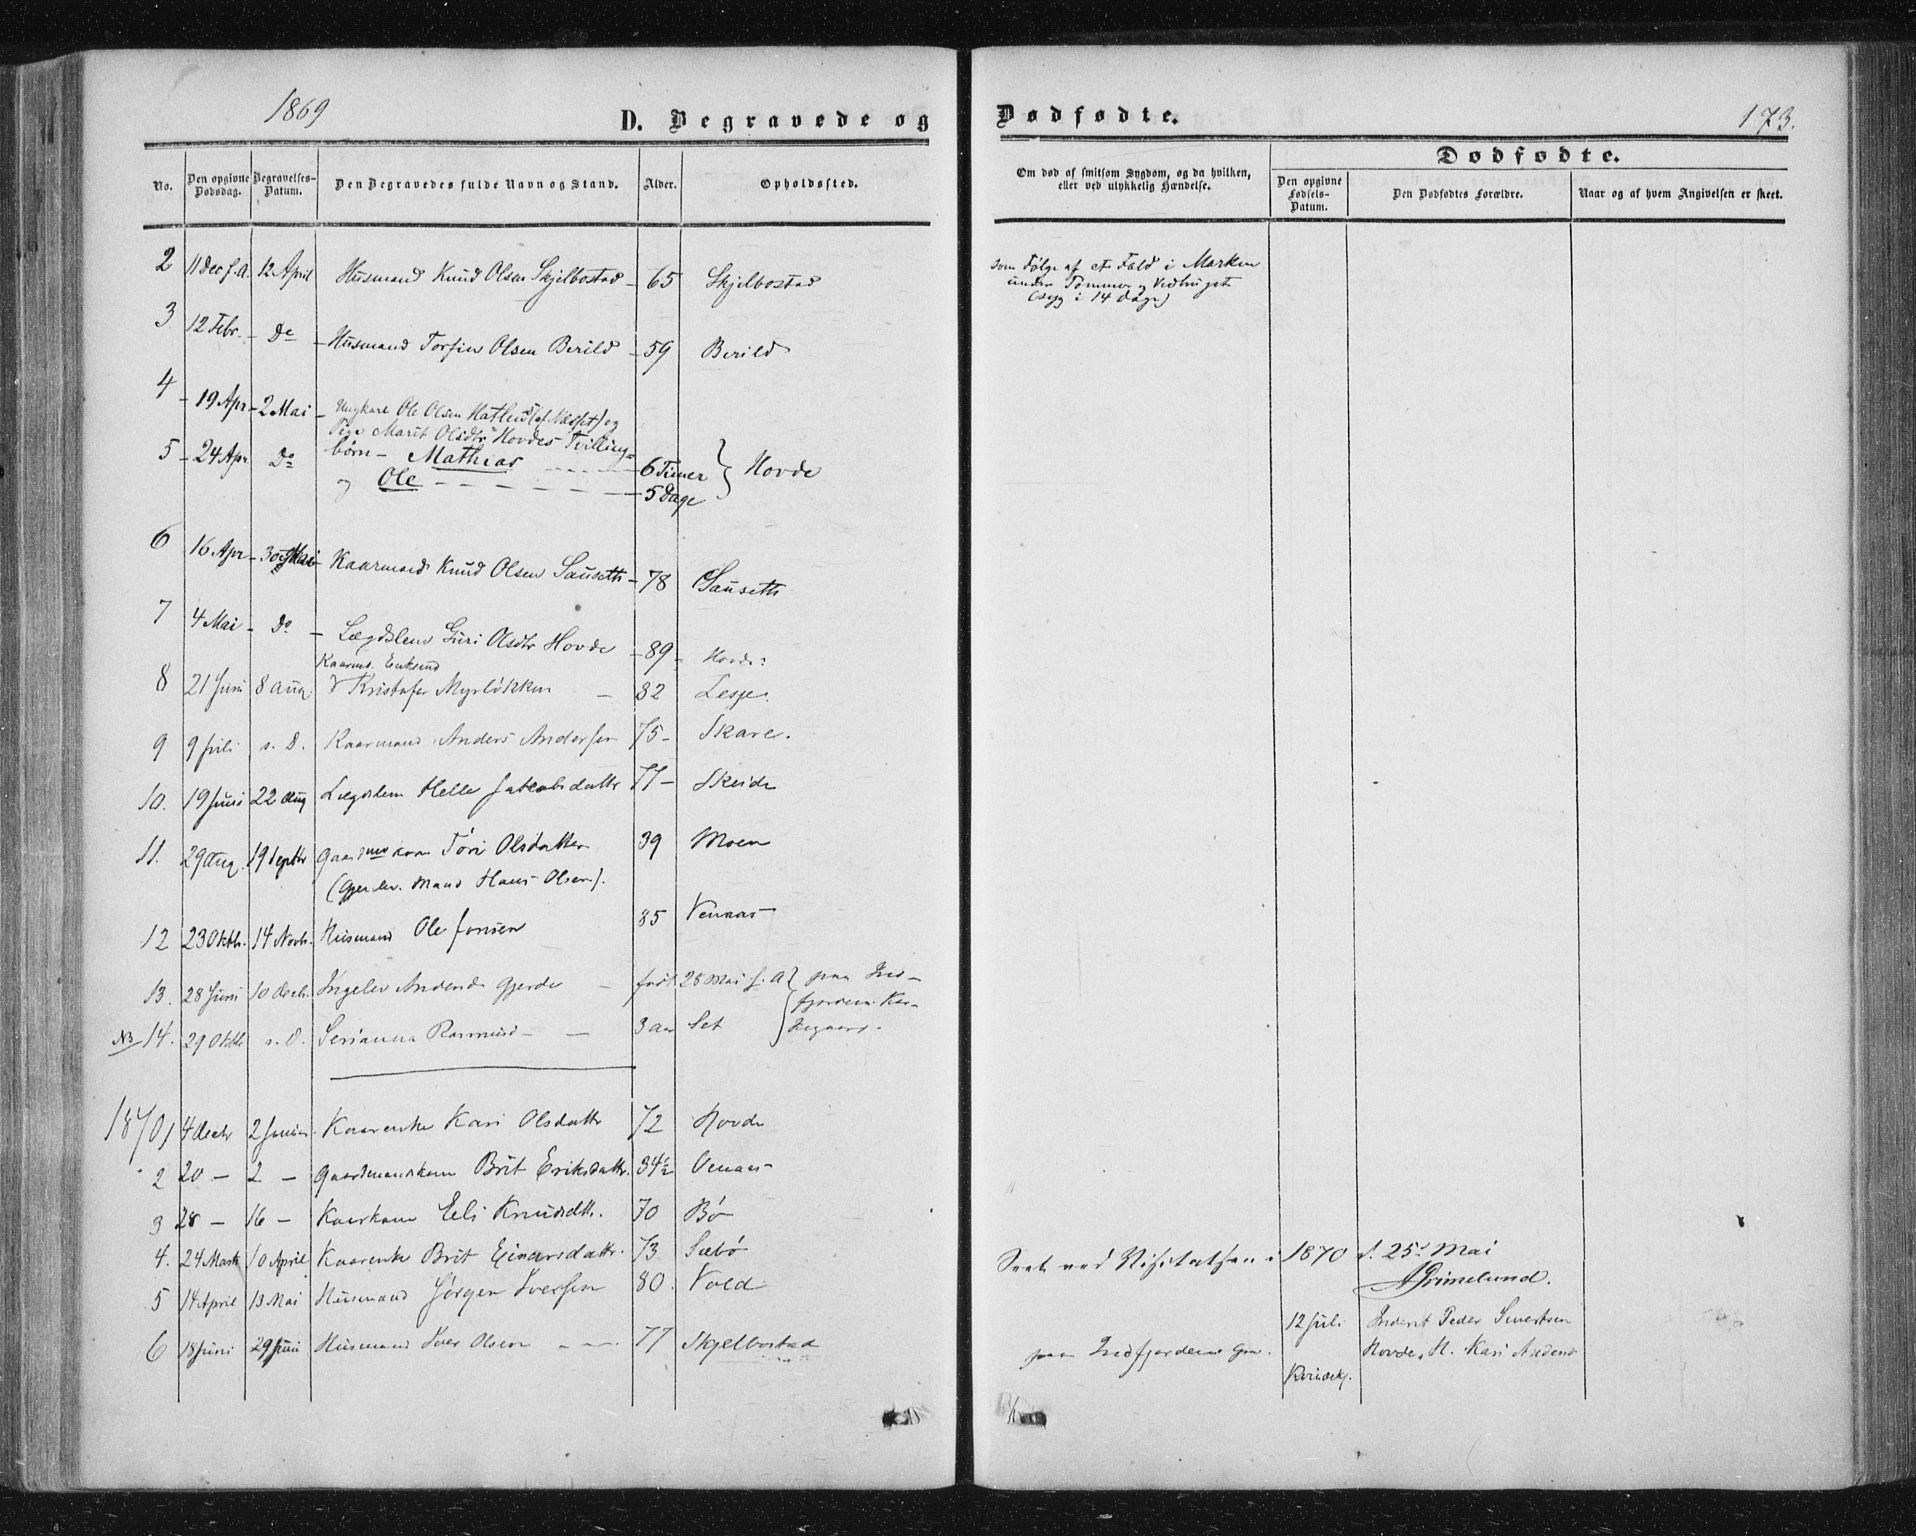 1869
D. Begravede og
Dødfødte.
173.
No.
Den opgivne Dødsdag.
Begravelses-Datum.
Den Begravedes fulde Navn og Stand.
Alder.
Opholdssted.
Om død af smitsom Sygdom, og da hvilken, eller ved ulykkelig Hændelse.
Dødfødte.
Den opgivne Fødsels-Datum.
Den Dødfødtes Forældre.
Naar og af hvem Angivelsen er skeet.
2 11 Dec f.A. 12 April Husmand Knud Olsen Skjelbostad - 65 Skjelbostad
som Følge af et Fald i Marken
under Tømmer og Vedhugst
(syg i 14 Dage)
3 12 Febr. - Do - Husmand Torfin Olsen Berild - 59 Berild
4 - 19 Apr - 2 Mai - Ungkarl Ole Olsen (af Næsset) og
Pige Marit Olsdtr Hovdes Tvilling=
5 - 24 Apr Do børn - Mathias - 6 Timer } Hovde
og Ole - 5 Dage
6 16 Apr - 30 Mai - Kaarmand Knud Olsen Sauseth - 78 Sauseth
7 4 Mai - Do - Lægdslem Guri Olsdtr Hovde - 89 - Hovde
Kaarmd. Enkemd
8 21 Juni 8 Aug Kristofer Myrløkken - 82 Lesje.
9 9 Juli s. D. Kaarmand Anders Andersen 75 - Skare.
10. 19 Juni 22 Aug Lægdslem Helle Jakobsdattr 77 - Skeide
11. 29 Aug. 19 Septbr Gaardmdkone Tóri Olsdatter 39 Moen
(Gjenlev. Mand Hans Olsen).
12 23 Oktb. 14 Novb. Husmand Ole Jonsen 85 Venaas
13. 28 Juni 10 Decb. Ingelev Andersd Gjerde - født 28 Mai f. A } paa Ind-
fjordens Kir-
NB 14. 29 Oktbr s. D. Serianna Rasmusd - 3 aar Set
kegaard.
1870 1 4 Decbr 2 Januar Kaarenke Kari Olsdattr 72 Hovde
2 20 - 2 - Gaardmandskone Brit Eriksdattr. 34½ Venaas
3 28 - 16 - Kaarkone Eli Knudsdtr. 70 Bø
4. 24 Marts 10 April Kaarenke Brit Einarsdattr. 73 Sæbø
Seet ved Visitatsen i 1870 d. 25de Mai
Grimelund.
5 14 April 13 Mai Husmand Jørgen Iversen 80. Vold
6 18 Juni 29 Juni Husmand Iver Olsen - 77 Skjelbostad
paa Indfjordens
12 Juli Inderst Peder Sivertsen
Hovde, H. Kari Andersd
Kvindekj.